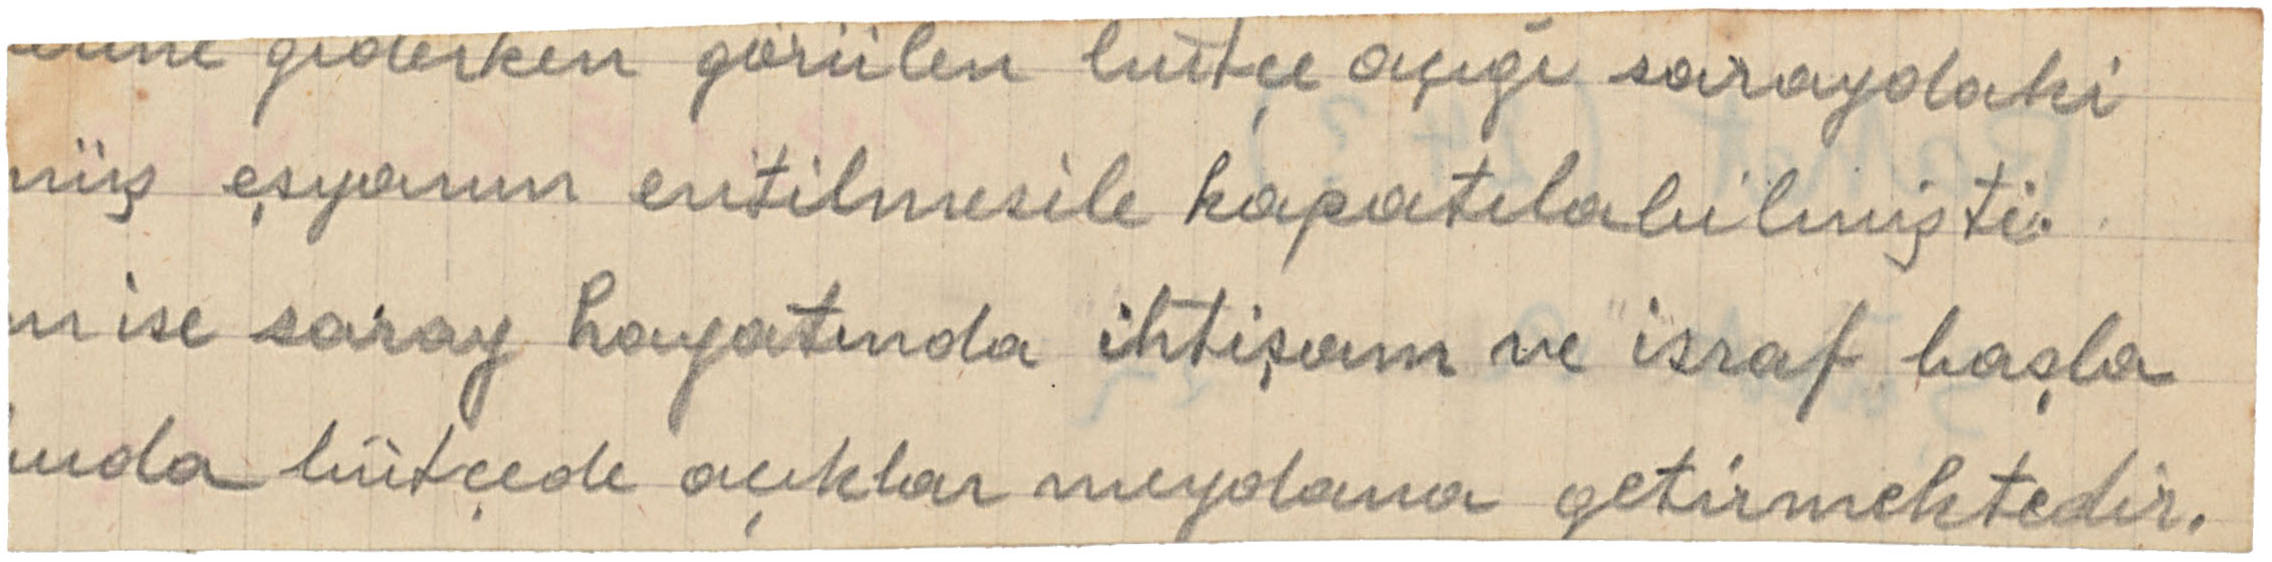 giderken görülen bütçe açığı saraydaki
müş eşyanın eritilmesile kapatılabilmişti.
n ise saray hayatında ihtişam ve israf başla
nda bütçede açıklar meydana getirmektedir.